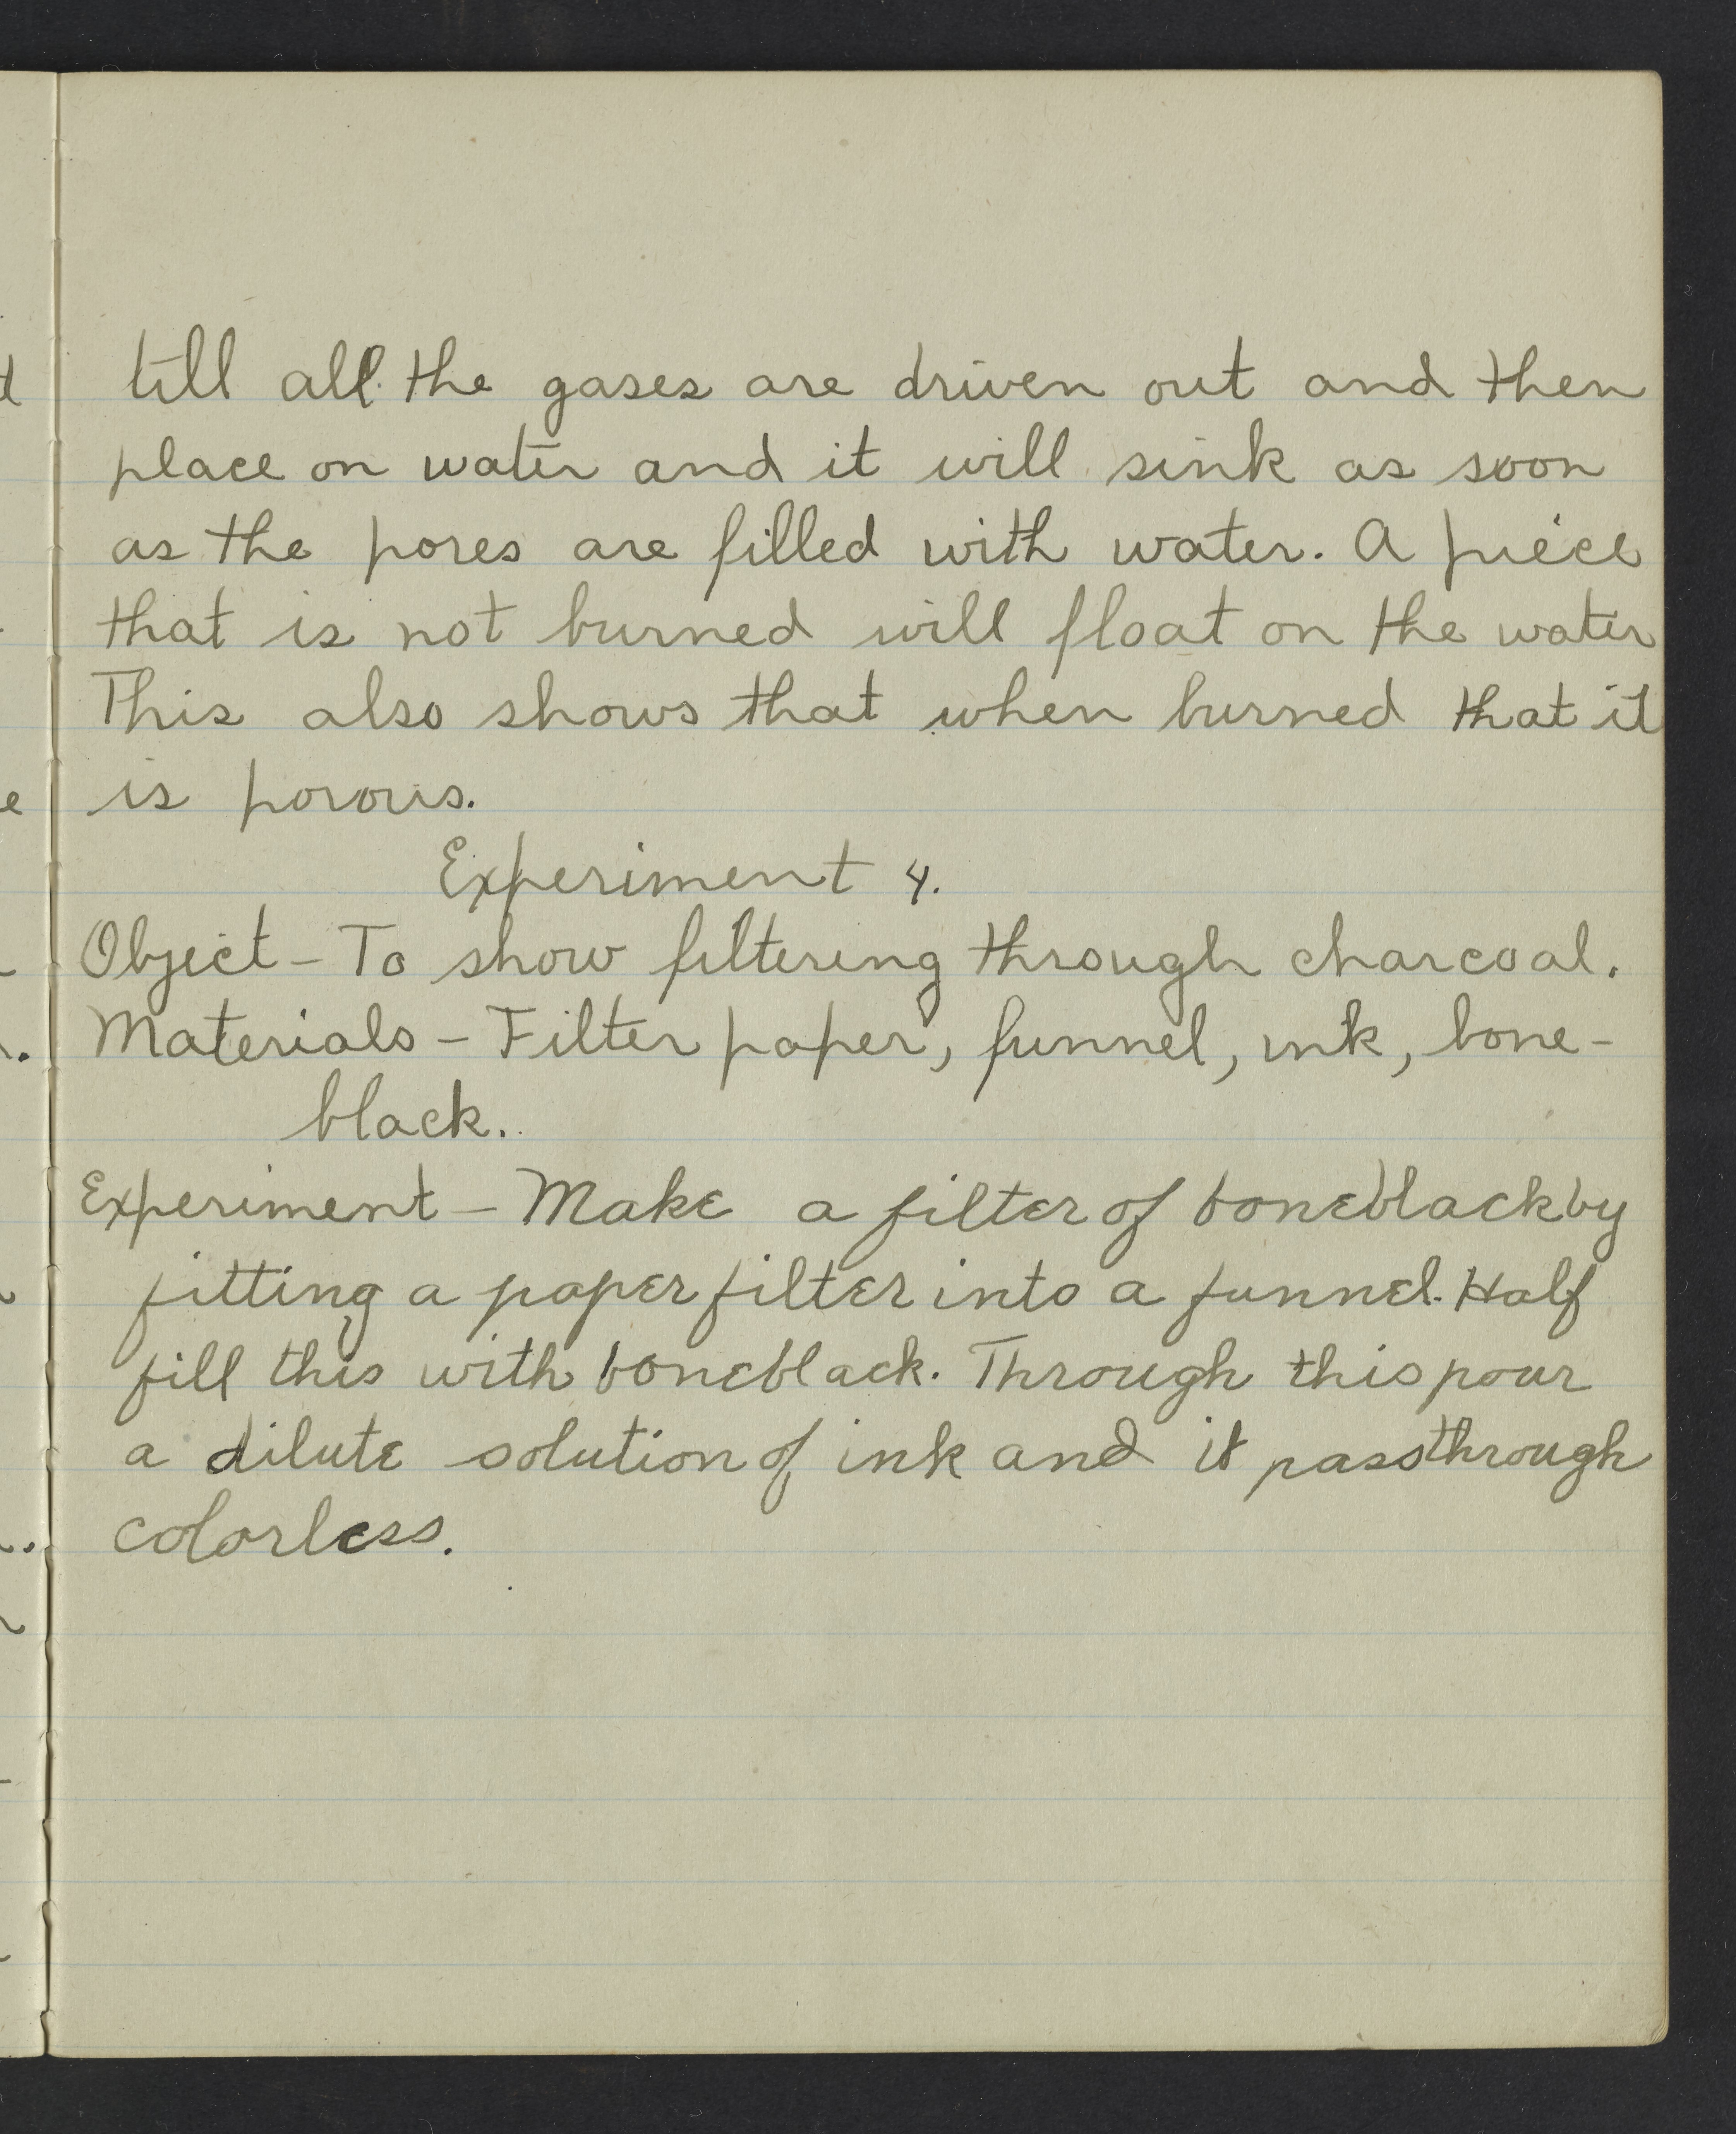 till all the gases are driven out and then
place on water and it will sink as soon
as the pores are filled with water. A piece
that is not burned will float on the water
This also shows that when burned that it
is porous.
Experiment 4.
Object - To show filtering through charcoal.
Materials - Filter paper, funnel, ink, bone-
black.
Experiment - Make a filter of boneblack by
fitting a paper filter into a funnel. Half
fill this with boneblack. Through this pour
a dilute solution of ink and it pass through
colorless.